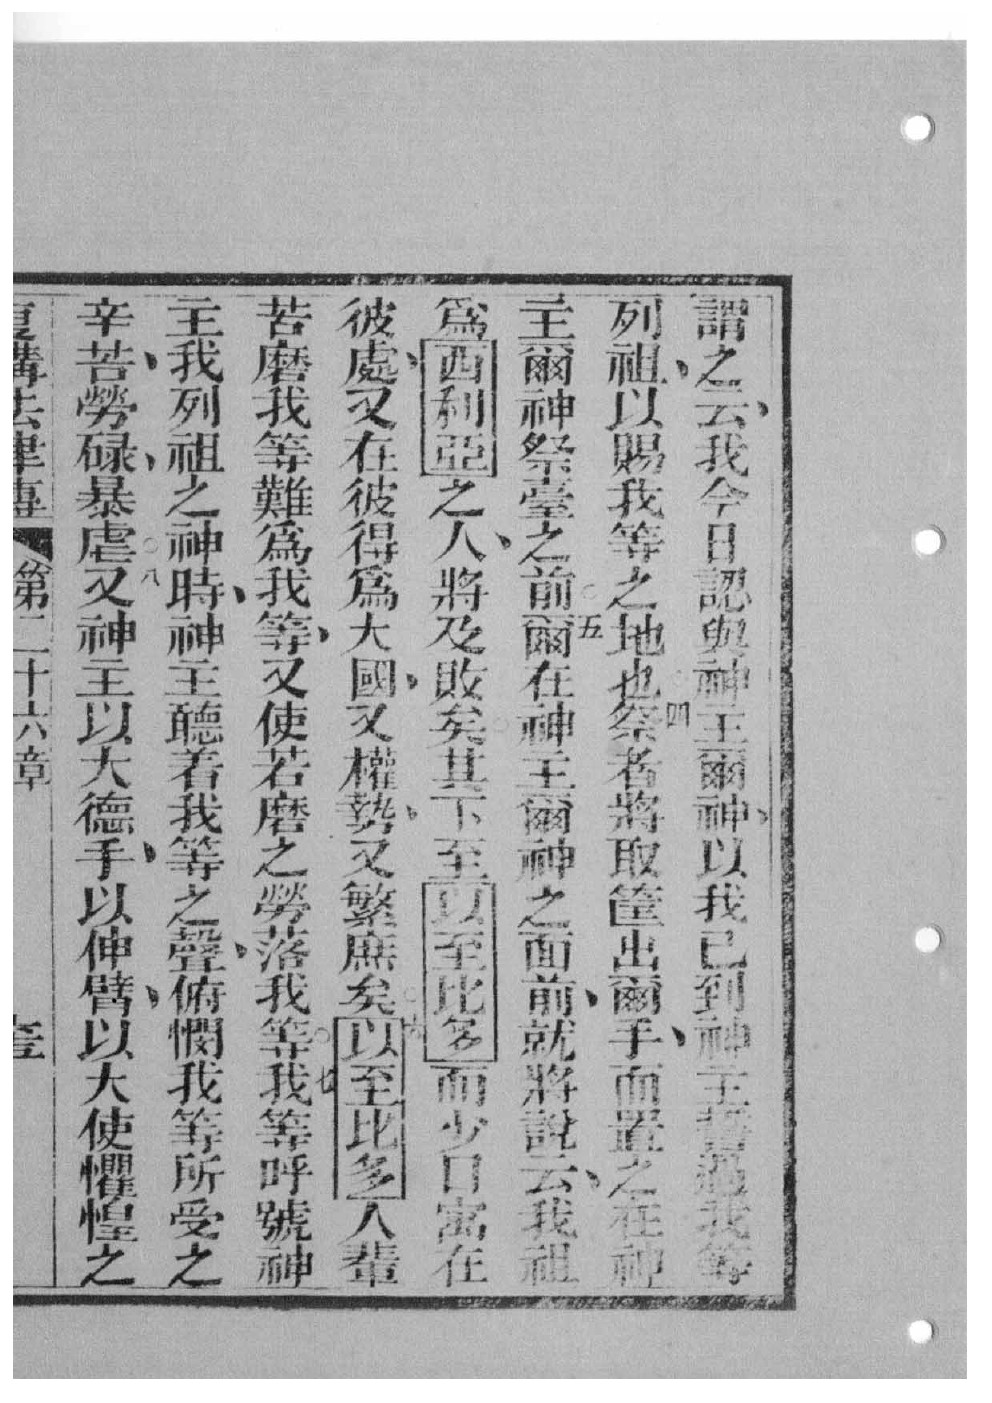 謂之云我今日認與神主爾神以我已到神主誓過我等
列祖以賜我等之地也四祭者將取筐出爾手而置之在神
主爾神祭臺之前五爾在神主爾神之面前就將說云我祖
爲西利亞之人將及敗矣其下至以至比多而少口寓在
彼處又在彼得爲大國又權勢又繁庶矣六以至比多人輩
苦磨我等難爲我等又使苦磨之勞落我等七我等呼號神
主我列祖之神時神主聽着我等之聲俯憫我等所受之
辛苦勞碌暴虐八又神主以大德手以伸臂以大使懼惶之
復講法律傳 第二十六章